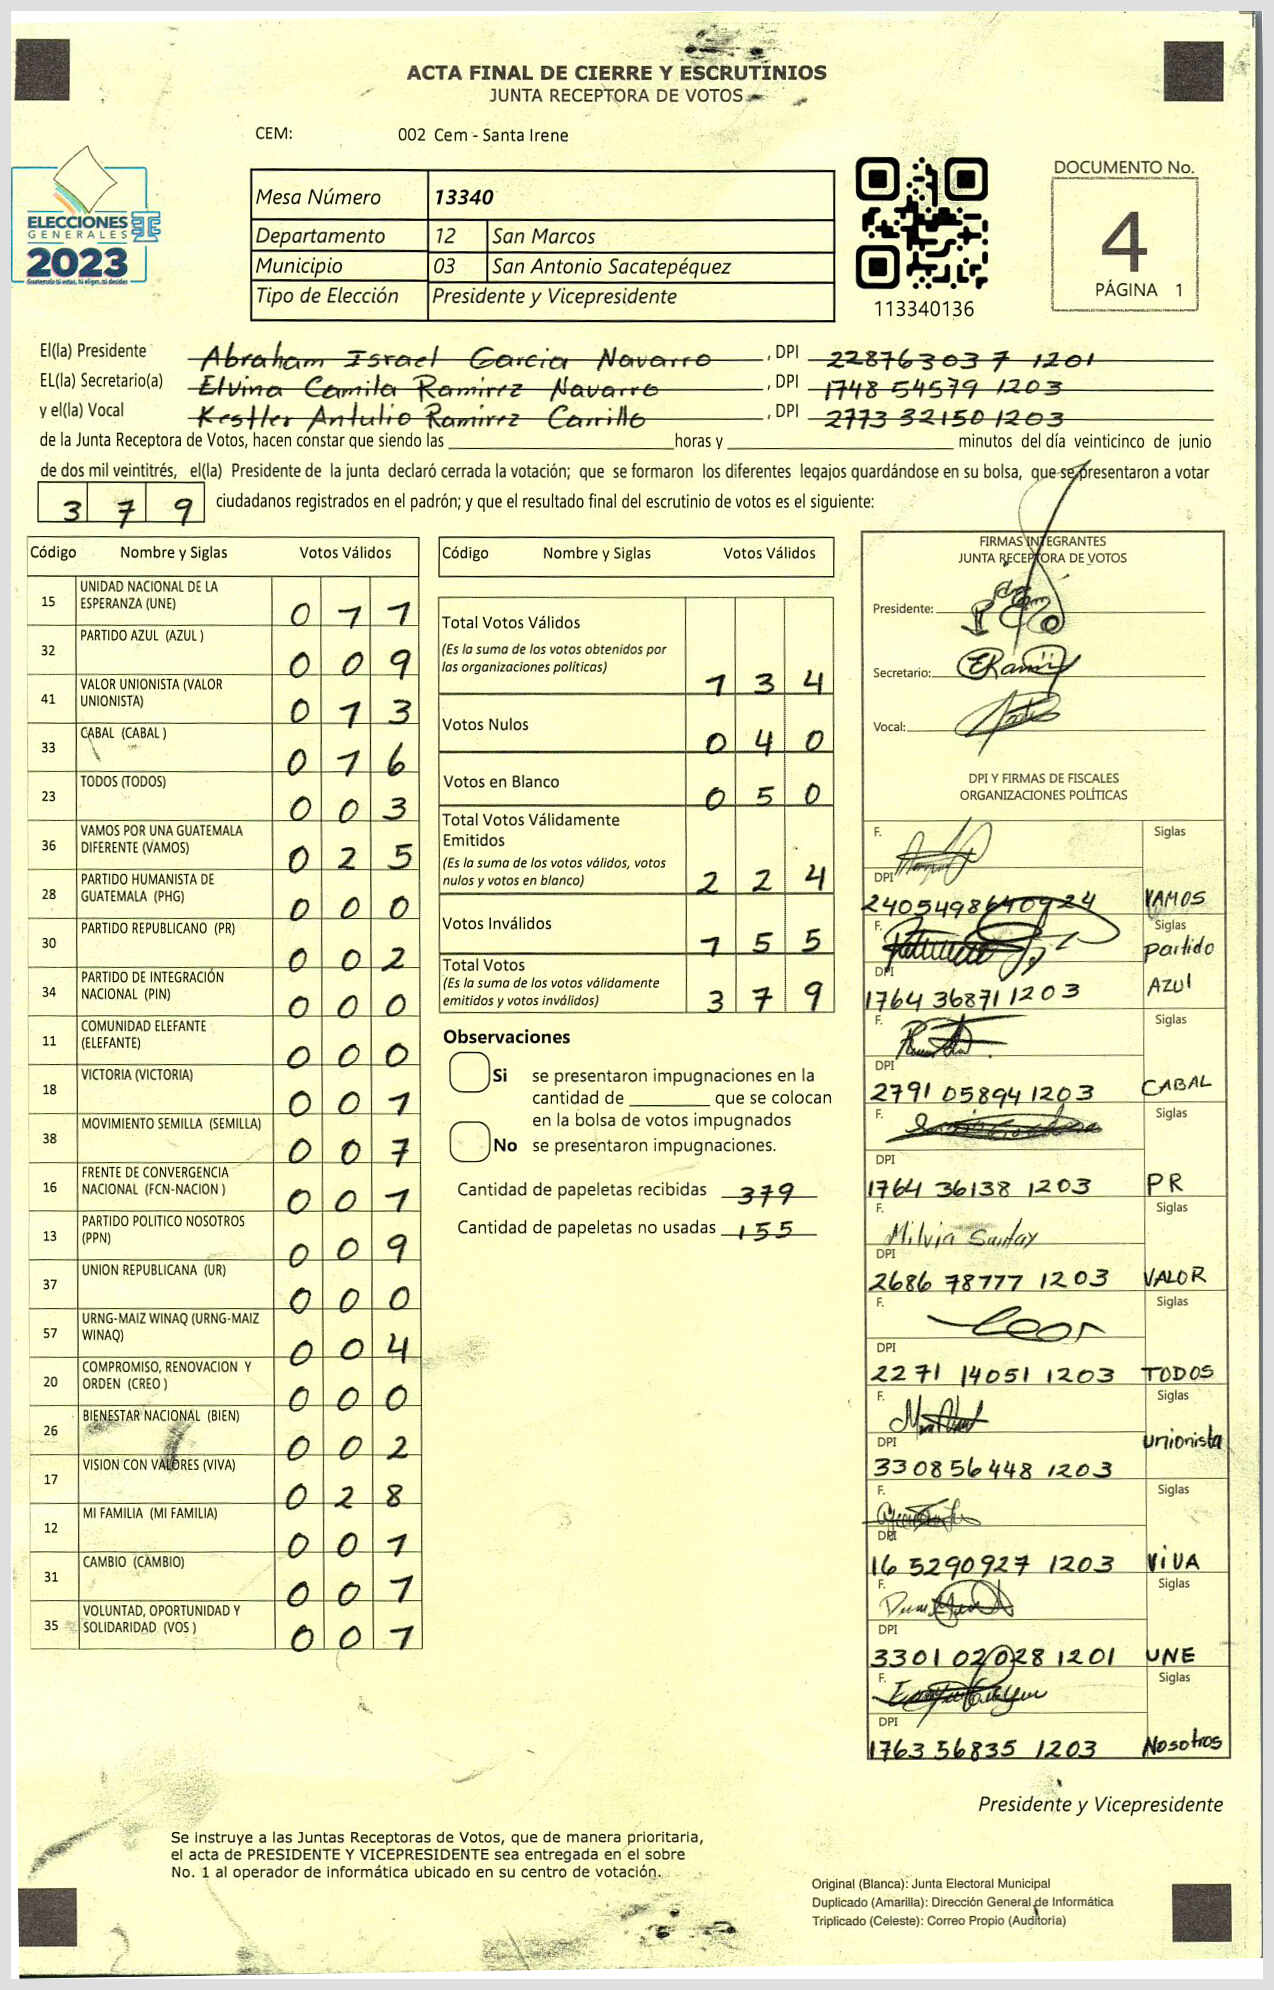 ACTA FINAL DE CIERRE Y ESCRUTINIOS
JUNTA RECEPTORA DE VOTOS
CEM: 002 Cem - Santa Irene
ELECCIONES
GENERALES
2023
Mesa Número 13340
Departamento 12 San Marcos
Municipio 03 San Antonio Sacatepéquez
Tipo de Elección Presidente y Vicepresidente
113340136
DOCUMENTO No.
4
PÁGINA 1
El(la) Presidente Abraham Israel Garcia Navarro , DPI 228763037 1201
EL(la) Secretario(a) Elvina Camila Ramirez Navarro , DPI 1748 54579 1203
y el(la) Vocal Kestler Antulio Ramirez Carrillo , DPI 2773 32150 1203
de la Junta Receptora de Votos, hacen constar que siendo las horas y minutos del día veinticinco de junio
de dos mil veintitrés, el(la) Presidente de la junta declaró cerrada la votación; que se formaron los diferentes legajos guardándose en su bolsa, que se presentaron a votar
379 ciudadanos registrados en el padrón; y que el resultado final del escrutinio de votos es el siguiente:
Código Nombre y Siglas Votos Válidos
15 UNIDAD NACIONAL DE LA ESPERANZA (UNE) 011
32 PARTIDO AZUL (AZUL ) 009
41 VALOR UNIONISTA (VALOR UNIONISTA) 013
33 CABAL (CABAL ) 016
23 TODOS (TODOS) 003
36 VAMOS POR UNA GUATEMALA DIFERENTE (VAMOS) 025
28 PARTIDO HUMANISTA DE GUATEMALA (PHG) 000
30 PARTIDO REPUBLICANO (PR) 002
34 PARTIDO DE INTEGRACIÓN NACIONAL (PIN) 000
11 COMUNIDAD ELEFANTE (ELEFANTE) 000
18 VICTORIA (VICTORIA) 001
38 MOVIMIENTO SEMILLA (SEMILLA) 007
16 FRENTE DE CONVERGENCIA NACIONAL (FCN-NACION ) 001
13 PARTIDO POLITICO NOSOTROS (PPN) 009
37 UNION REPUBLICANA (UR) 000
57 URNG-MAIZ WINAQ (URNG-MAIZ WINAQ) 004
20 COMPROMISO, RENOVACION Y ORDEN (CREO ) 000
26 BIENESTAR NACIONAL (BIEN) 002
17 VISION CON VALORES (VIVA) 028
12 MI FAMILIA (MI FAMILIA) 001
31 CAMBIO (CAMBIO) 001
35 VOLUNTAD, OPORTUNIDAD Y SOLIDARIDAD (VOS ) 001
Código Nombre y Siglas Votos Válidos
Total Votos Válidos
(Es la suma de los votos obtenidos por
las organizaciones políticas) 134
Votos Nulos 040
Votos en Blanco 050
Total Votos Válidamente
Emitidos
(Es la suma de los votos válidos, votos
nulos y votos en blanco) 224
Votos Inválidos 155
Total Votos
(Es la suma de los votos válidamente
emitidos y votos inválidos) 379
Observaciones
Si se presentaron impugnaciones en la
cantidad de que se colocan
en la bolsa de votos impugnados
No se presentaron impugnaciones.
Cantidad de papeletas recibidas 379
Cantidad de papeletas no usadas 155
FIRMAS INTEGRANTES
JUNTA RECEPTORA DE VOTOS
Presidente:
Secretario:
Vocal:
DPI Y FIRMAS DE FISCALES
ORGANIZACIONES POLÍTICAS
F. Siglas
DPI
2405498640924 VAMOS
F. Siglas
DPI
1764 36871 1203 partido AZUl
F. Siglas
DPI
2791 05894 1203 CABAL
F. Siglas
DPI
1764 36138 1203 PR
F. Milvia Siglas
DPI
2686 78777 1203 VALOR
F. Siglas
DPI
2271 14051 1203 TODOS
F. Siglas
DPI
330856448 1203 unionista
F. Siglas
DPI
16 5290927 1203 ViVA
F. Siglas
DPI
3301 02028 1201 UNE
F. Siglas
DPI
1763 56835 1203 Nosotros
Presidente y Vicepresidente
Se instruye a las Juntas Receptoras de Votos, que de manera prioritaria,
el acta de PRESIDENTE Y VICEPRESIDENTE sea entregada en el sobre
No. 1 al operador de informática ubicado en su centro de votación.
Original (Blanca): Junta Electoral Municipal
Duplicado (Amarilla): Dirección General de Informática
Triplicado (Celeste): Correo Propio (Auditoría)